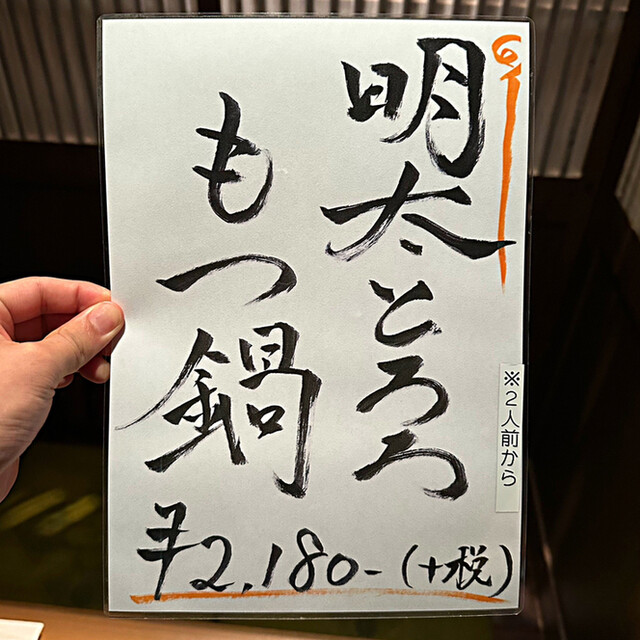 明太とろろ
もつ鍋
※2人前から
¥2,180-(+税)